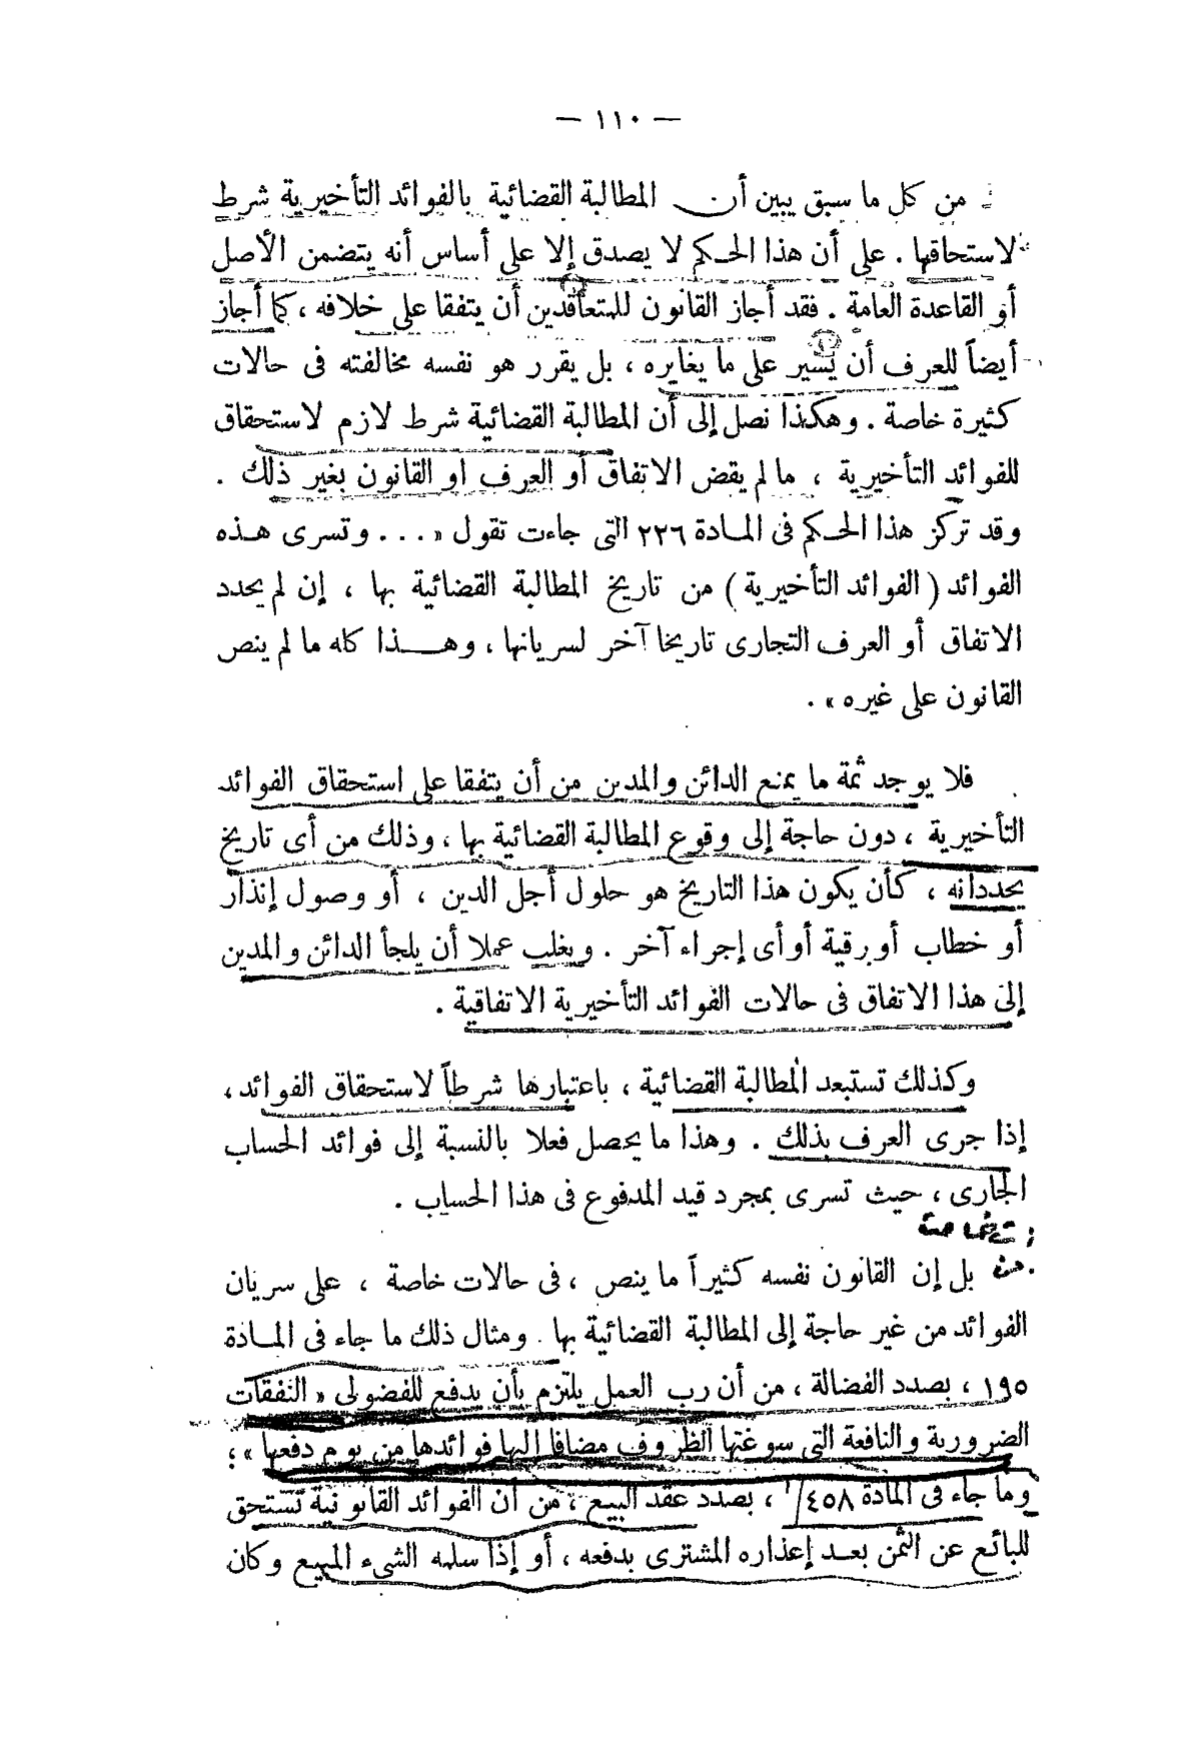 — ١١٠ —
من كل ما سبق يبين أن المطالبة القضائية بالفوائد التأخيرية شرط
لاستحقاقها . على أن هذا الحكم لا يصدق إلا على أساس أنه يتضمن الأصل
أو القاعدة العامة . فقد أجاز القانون للمتعاقدين أن يتفقا على خلافه ، كما أجاز
أيضاً للعرف أن يسير على ما يغايره ، بل يقرر هو نفسه مخالفته فى حالات
كثيرة خاصة . وهكذا نصل إلى أن المطالبة القضائية شرط لازم لاستحقاق
للفوائد التأخيرية ، ما لم يقض الاتفاق أو العرف او القانون بغير ذلك .
وقد تركز هذا الحكم فى المادة ٢٢٦ التى جاءت تقول « ... وتسرى هذه
الفوائد ( الفوائد التأخيرية ) من تاريخ المطالبة القضائية بها ، إن لم يحدد
الاتفاق أو العرف التجارى تاريخا آخر لسريانها ، وهذا كله ما لم ينص
القانون على غيره » .
فلا يوجد ثمة ما يمنع الدائن والمدين من أن يتفقا على استحقاق الفوائد
التأخيرية ، دون حاجة إلى وقوع المطالبة القضائية بها ، وذلك من أى تاريخ
يحددانه ، كأن يكون هذا التاريخ هو حلول أجل الدين ، أو وصول إنذار
أو خطاب أو برقية أو أى إجراء آخر . ويغلب عملا أن يلجأ الدائن والمدين
إلى هذا الاتفاق فى حالات الفوائد التأخيرية الاتفاقية .
وكذلك تستبعد المطالبة القضائية ، باعتبارها شرطاً لاستحقاق الفوائد ،
إذا جرى العرف بذلك . وهذا ما يحصل فعلا بالنسبة إلى فوائد الحساب
الجارى ، حيث تسرى بمجرد قيد المدفوع فى هذا الحساب .
بل إن القانون نفسه كثيراً ما ينص ، فى حالات خاصة ، على سريان
الفوائد من غير حاجة إلى المطالبة القضائية بها . ومثال ذلك ما جاء فى المادة
١٩٥ ، بصدد الفضالة ، من أن رب العمل يلتزم بأن يدفع للفضولى « النفقات
الضرورية والنافعة التى سوغتها الظروف مضافا إليها فوائدها من يوم دفعها » ؛
وما جاء فى المادة ٤٥٨/١ ، بصدد عقد البيع ، من أن الفوائد القانونية تستحق
للبائع عن الثمن بعد إعذاره المشترى بدفعه ، أو إذا سلمه الشىء المبيع وكان